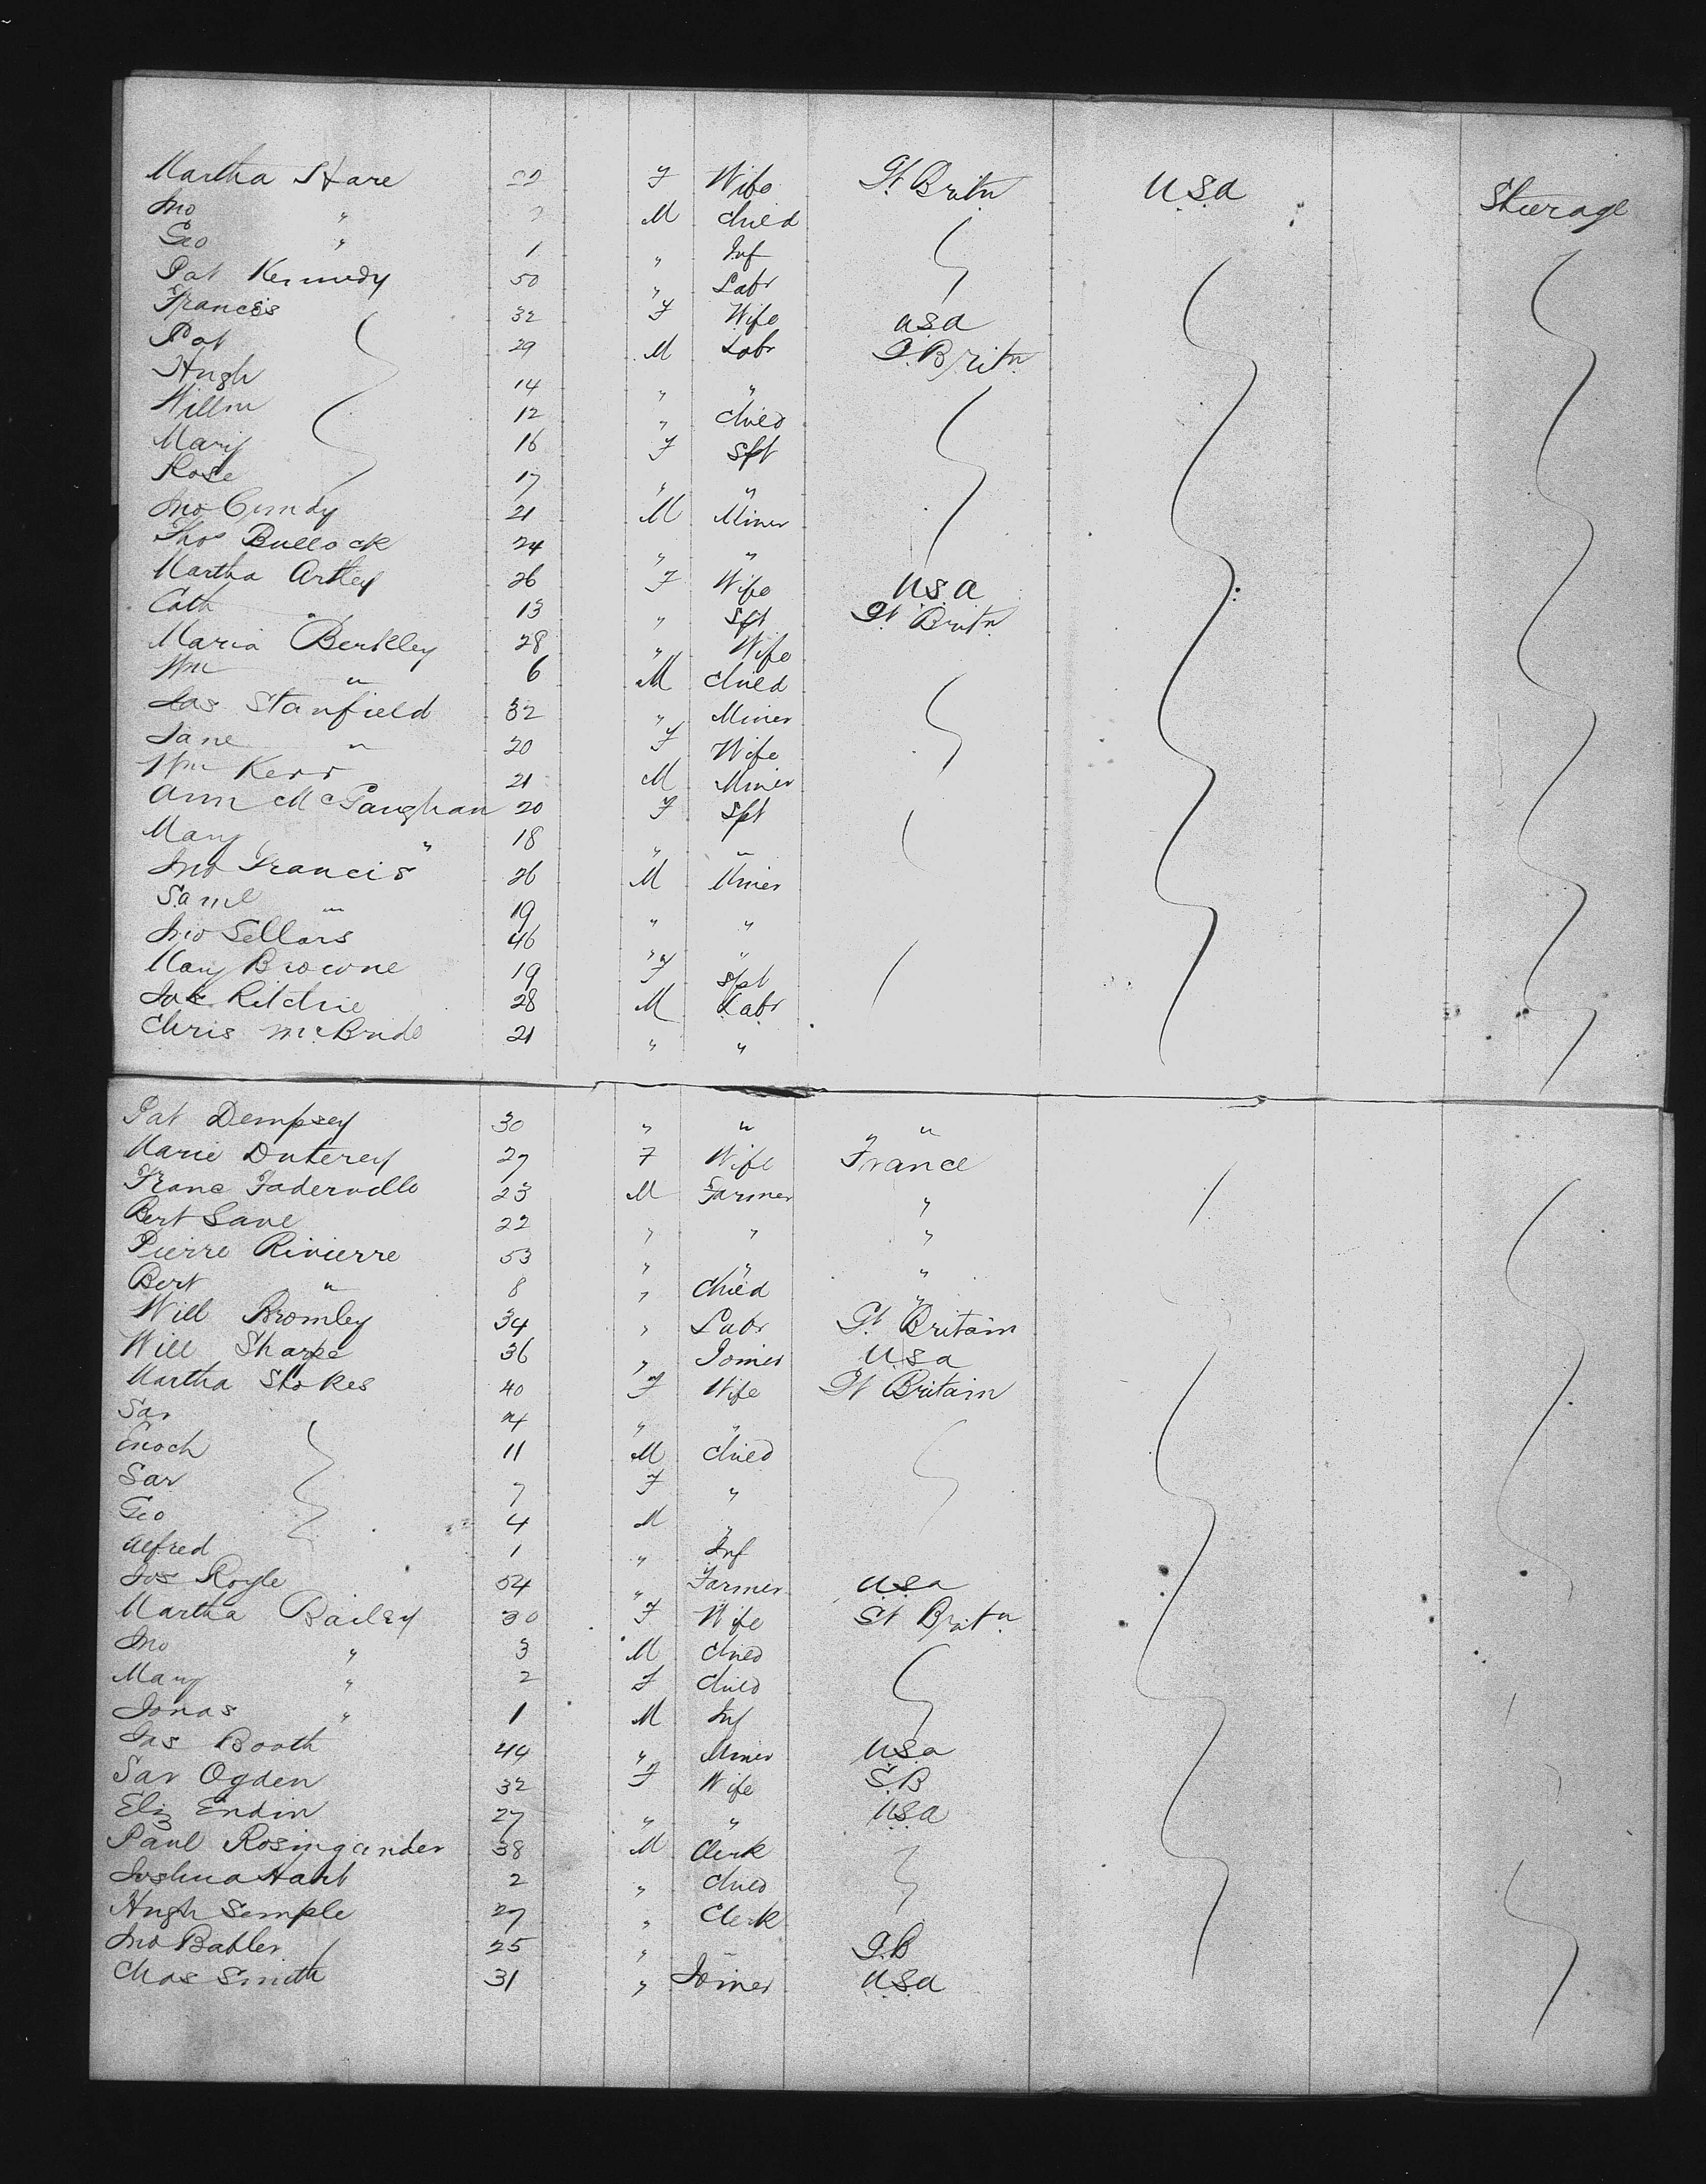 Martha Hare 22 F Wife Gt Britn U.S.A Steerage
Jno " 2 M Child
Geo " 1 " Inf
Pat Kennedy 50 " Labr
Frances 32 F Wife USA
Pat 29 M Labr G. Britn
Hugh 14 " "
Willm 12 " Child
Mary 16 F Spt
Rose 17 " "
Jno Cundy 21 M Miner
Thos Bullock 24 " "
Martha Artley 26 F Wife U.S.A
Cath " 13 " Spt Gt Britn
Maria Berkley 28 " Wife
Wm " 6 M Child
Jas Stanfield 32 " Miner
Jane " 20 F Wife
Wm Kerr 21 M Miner
Ann McGaughan 20 F Spt
Mary " 18 " "
Jno Francis 26 M Miner
Saml " 19 " "
Jno Sellars 46 " "
Mary Browne 19 F Spt
Jos Ritchie 28 M Labr
Chris McBride 21 " "
Pat Dempsey 30 " " " "
Marie Duterey 27 F Wife France
Franc 23 M Farmer "
Bert Lave 22 " " "
Pierre Rivierre 53 " " "
Bert " 8 " Child "
Will Bromley 34 " Labr Gt Britain
Will Sharpe 36 " Joiner U.S.A
Martha Stokes 40 F Wife Gt Britain
Sar " "
Enoch 11 M Child
Sar 7 F "
Geo 4 M "
Alfred 1 " Inf
Jos Royle 54 " Farmer U.S.A
Martha Bailey 30 F Wife Gt Britn
Jno " 3 M Child
Mary " 2 F Child
Jonas " 1 M Inf
Jas Booth 44 " Miner U.S.A
Sar Ogden 32 F Wife G.B
Eliz Endin 27 " " U.S.A
Paul Rosingander 38 M Clerk
Joshua Hart 2 " Child
Hugh Semple 27 " Clerk
Jno Babler 25 " " G.B
Chas Smith 31 " Joiner U.S.A